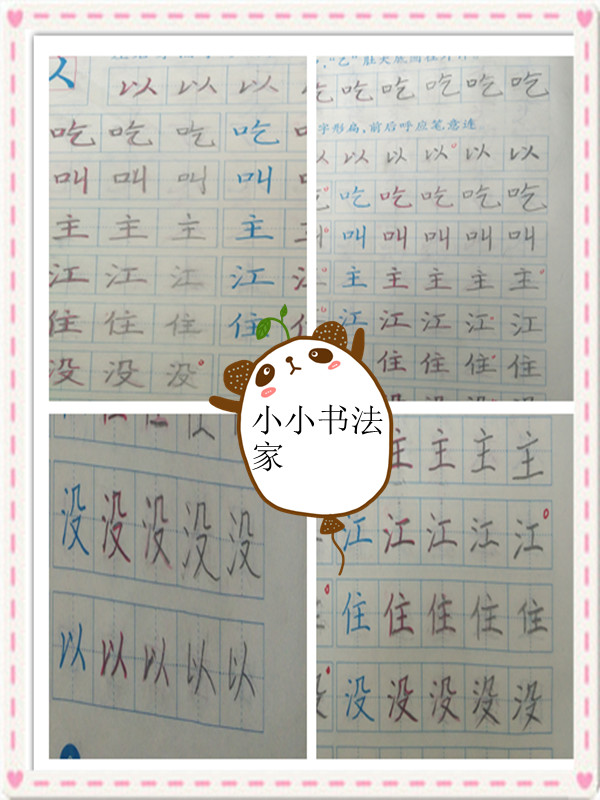 以 以 以
吃 吃 吃 吃
叫 叫 叫 叫
主 主 主 主
江 江 江 江
住 住 住 住
没 没 没
吃 吃 吃 吃 吃
字形扁,前后呼应笔意连
以 以 以 以 以
吃 吃 吃 吃 吃
叫 叫 叫 叫 叫
主 主 主 主 主
江 江 江 江 江
住 住 住 住
小小书法
家
没 没 没 没 没
以 以 以 以 以
主 主 主 主
江 江 江 江 江
住 住 住 住 住
没 没 没 没 没